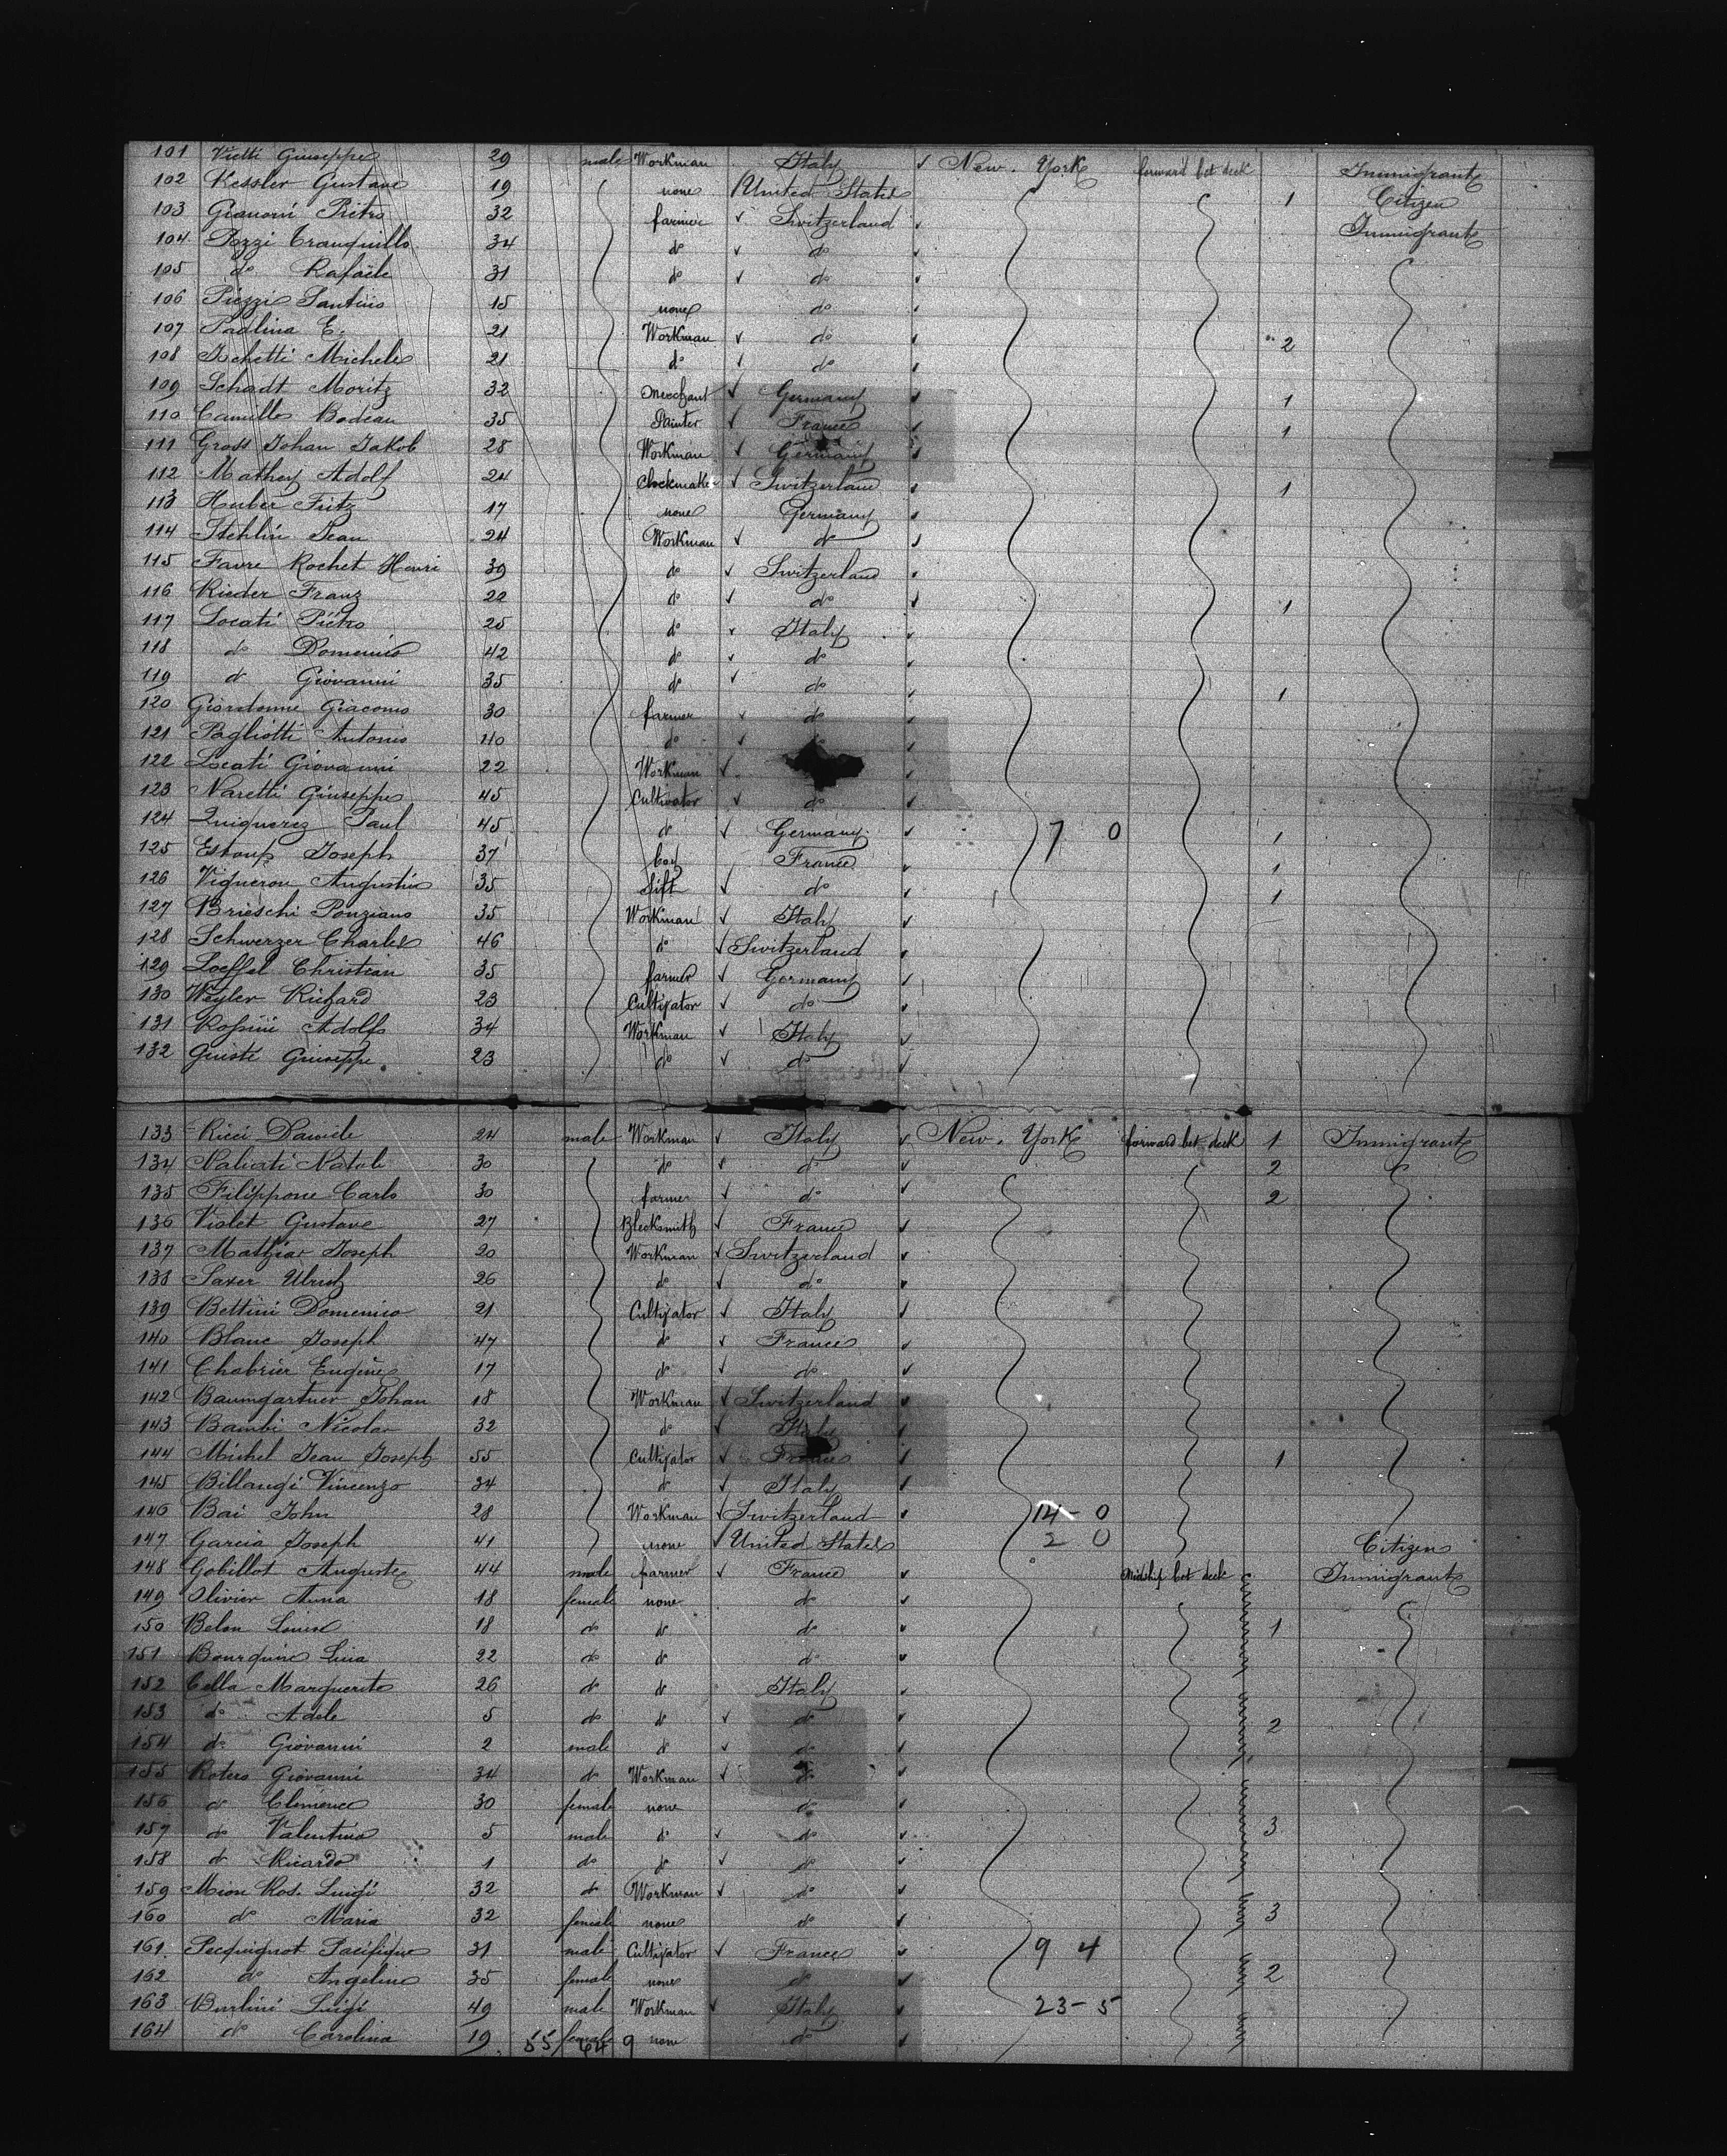 101 Vietti Giuseppe 29 male Workman Italy New. York forward bet deck Immigrant
102 Kessler Gustave 19 none United States 1 Citizen
103 Gianoni Pietro 32 farmer Switzerland Immigrant
104 Pozzi Tranquillo 34 do do
105 do Rafaële 31 do do
106 Piezzi Santino 15 none do
107 Padlina E. 21 Workman do 2
108 Michele 21 do do
109 Schadt Moritz 32 Merchant Germany 1
110 Camille Bodeau 35 Painter France 1
111 Gross Johan Jakob 28 Workman Germany
112 Mathey Adolf 24 Clockmaker Switzerland 1
113 Huber Fritz 17 none Germany
114 Stehlin Jean 24 Workman do
115 Favre Rochet Henri 39 do Switzerland
116 Rieder Franz 22 do do 1
117 Locati Piétro 25 do Italy
118 do Domenico 42 do do
119 do Giovanni 35 do do 1
120 Giacomo 30 farmer do
121 Pagliotti Antonio 40 do
122 Locati Giovanni 22 Workman
123 Naretti Giuseppe 45 Cultivator do
124 Quiquerez Paul 45 do Germany 7 0 1
125 Estoup Joseph 37 France 1
126 Vigneron Augustin 35 do 1
127 Brieschi Ponziano 35 Workman Italy
128 Schwerzer Charles 46 do Switzerland
129 Loeffel Christian 35 farmer Germany
130 Weyler Richard 23 Cultivator do
131 Rossini Adolfo 34 Workman Italy
132 Giusti Giuseppe. 23 do do
133 Ricci Daniele 24 male Workman Italy New. York forward bet deck 1 Immigrant
134 Natale 30 do do 2
135 Filippone Carlo 30 farmer do 2
136 Violet Gustave 27 Blecksmith France
137 Joseph 20 Workman Switzerland
138 Saxer Ulrich 26 do do
139 Bettini Domenico 21 Cultivator Italy
140 Blanc Joseph 47 do France
141 Chabrier Eugène 17 do do
142 Baumgartner Johan 18 Workman Switzerland
143 Bambi Nicolas 32 do Italy
144 Michel Jean Joseph 55 Cultivator France 1
145 Billangi Vincenzo 34 do Italy
146 Bai John 28 Workman Switzerland 14-0
147 Garcia Joseph 41 none United States 2 0 Citizen
148 Gobillot Auguste 44 male farmer France Midship bet deck Immigrant
149 Olivier Anna 18 female none do
150 Belon Louise 18 do do do 1
151 Bourquin Lina 22 do do do
152 Cella Marguerite 26 do do Italy
153 do Adele 5 do do do 2
154 do Giovanni 2 male do do
155 Giovanni 34 do Workman do
156 do Clemence 30 female none do
157 do Valentino 5 male do do 3
158 do Ricardo 1 do do do
159 Mion Ros. Luigi 32 do Workman do
160 do Maria 32 female none do 3
161 Pecquignot Pacifique 31 male Cultivator France 9 4
162 do Angeline 35 female none do 2
163 Burlini Luigi 49 male Workman Italy 23-5
164 do Carolina 19 55 female 64 9 none do